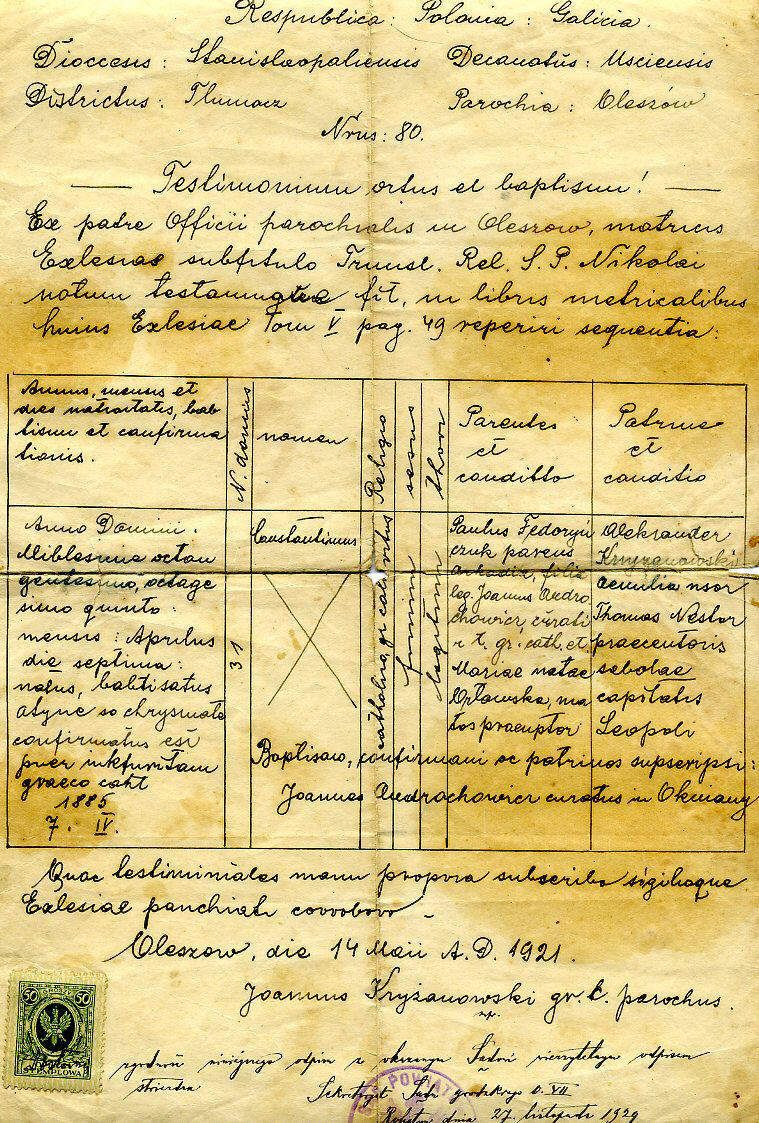 Respublica: Polonia: Galicia.
Dioecesis: Stanislaopoliensis Decanatus: Usciensis
Districtus: Tlumacz Parochia: Oleszów
Nrus: 80.
— Testimonium ortus et baptismi! —
Ex padre Officii parochialis in Oleszow, matricis
Exlesiae subtitulo Trunsl. Rel. S. P. Nikolai
notum testamurque fit, in libris metricalibus
huius Exlesiae Tom V pag. 49 reperiri sequentia:
Annus, mensis et
dies nativitatis, bab
tismi et confirma
tionis.
N. domus
nomen
Religio
sexus
thori
Parentes
et
conditio
Patrini
et
conditio
Anno Domini.
Millesimo octon
gentesimo, octage
simo quinto:
mensis: Aprilus
die septima:
natus, babtisatus
atque so chrysmate
confirmatus est
puer
graeco caht
1885
7. IV.
31
Constantinus
catholica, gr. cat. ritus
legitimi
Paulus Fedoryń
czuk parens
Arkadii, filia
leg. Joannus Andro
chowicz, curati
r. t. gr. cath. et
Mariae natae
Orlowska, ma
tos praeuptor
Aleksander
Kryżanowski
Aemilia uxor
Thomas Nestor
praecentoris
scholae
capitalis
Leopoli
Baptisavi, confirmavi ac patrinos supscripsi:
Joannes Androchowicz curatus in Okniany
Quae testiminiales manu propora subscribo sigiloque
Exlesiae parochiati covvobovo
Oleszow, die 14 Maii A. D. 1921.
Joannus Kryżanowski gr. c. parochus.
mp.
50 50
STEMPLOWA
zgodność niniejszego odpisu z okazanym Sądowi wierzytelnym odpisem
stwierdza
Sekretarz Sądu grodzkiego O. VII
POWIAT
dnia 27. listopada 1929